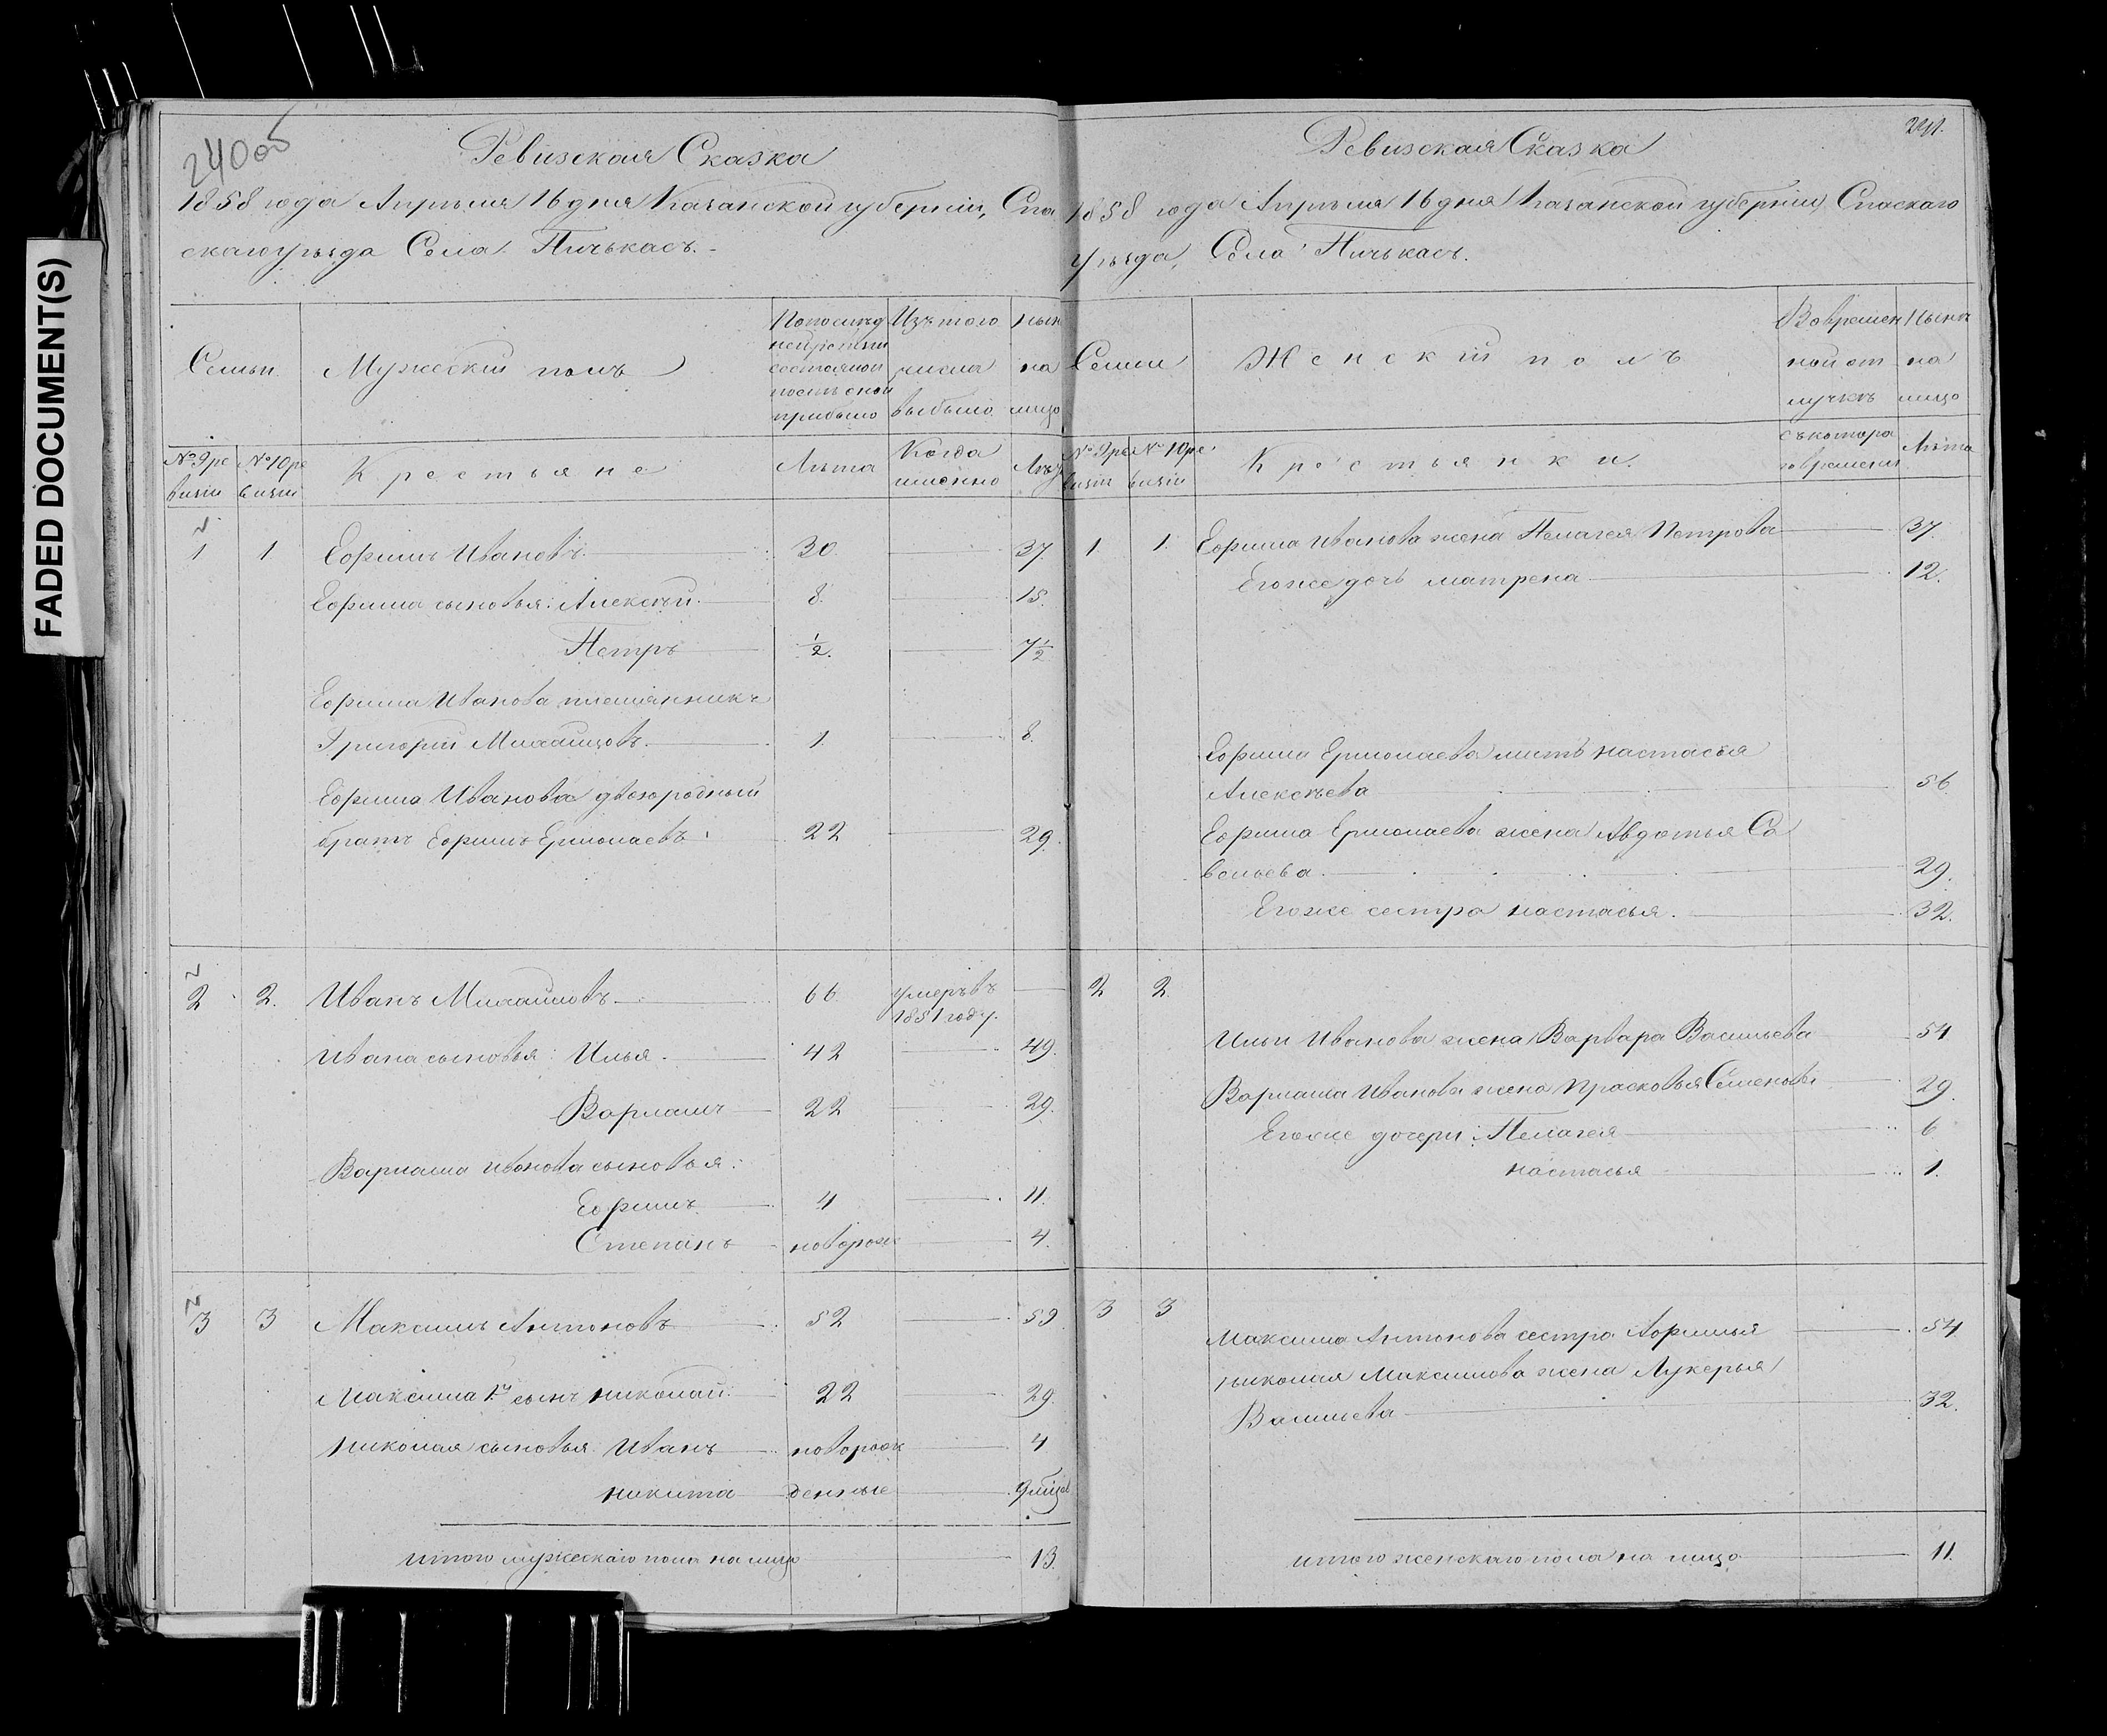 FADED DOCUMENT(S)
Ревизская Сказка
1858 года Апрѣля 16 дня Казанской губерніи, Спа
скаго уѣзда Села Пичькасъ.
Семьи Мужеский полъ По послѣд Изъ того Нын
ней ревизіи
состояло и числа на
послѣ оной
прибыло выбыло лицо
№ 9 ре № 10 ре Крестьяне Лѣта Когда Лѣт
визіи визіи именно
1 1 Ефимъ Ивановъ 30 37
Ефима сыновья: Алексѣй 8 15
Петръ ½ 7½
Ефима Иванова племянникъ
Григорий Михайловъ 1 8
Ефима Иванова двоюродный
братъ Ефимъ Ермолаевъ 22 29
2 2 Иванъ Михайловъ 66 умеръ въ
1851 году.
Ивана сыновья: Илья 42 49
Варламъ 22 29
Варлама Иванова сыновья:
Ефимъ 4 11
Степанъ новорож 4
3 3 Максимъ Антоновъ 52 59
Максима 1й сынъ Николай 22 29
Николая сыновья Иванъ новорож 4
Никита денные 9 мѣсе
итого мужескаго пола на лицо 13
291.
Ревизская Сказка
1858 года Апрѣля 16 дня Казанской губерніи, Спаскаго
уѣзда, Села Пичькасъ.
Семьи Женский полъ Во времен Нынѣ
ной от на
лучкѣ лицо
№ 9 ре № 10 ре Крестьянки. съ котора Лѣта
визіи визіи го времени
1 1 Ефима Иванова жена Пелагея Петрова 37
Его же дочь Матрена 12
Ефима Ермолаева мать Настасья
Алексѣева 56
Ефима Ермолаева жена Авдотья Са
вельева 29
Его же сестра Настасья 32
2 2
Ильи Иванова жена Варвара Васильева 54
Варлама Иванова жена Прасковья Семенова 29
Его же дочери: Пелагея 6
Настасья 1
3 3
Максима Антонова сестра Афимья 54
Николая Максимова жена Лукерья
Васильева 32
итого женскаго пола на лицо 11